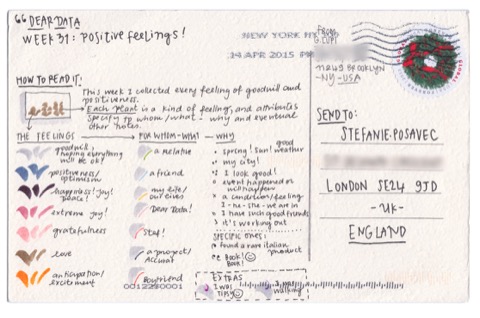 "DEAR DATA
WEEK 31: POSITIVE FEELINGS!
NEW YORK NY
14 APR 2015 PM
FROM:
G. LUPI
BROOKLYN
-NY- USA
HOW TO READ IT:
This week I collected every feeling of goodwill and
positiveness.
Each plant is a kind of feeling, and attributes
specify to whom/what - why and eventual
other notes.
SEND TO:
STEFANIE POSAVEC
LONDON SE24 9JD
-UK-
ENGLAND
THE FEELINGS
goodwill,
hoping everything
will be ok!
positiveness/
optimism
happiness! joy!
peace!
extreme joy!
gratefulness
love
anticipation/
excitement
FOR WHOM-WHAT
a relative
a friend
my life/
our lives
Dear Data!
Stef!
a project/
Accurat
Boyfriend
WHY
spring! Sun! good weather
my city!
I look good!
event happened or
will happen
a condition/feeling
I - he - she - we are in
I have such good friends
it's working out
SPECIFIC ONES:
found a rare italian
product
Book!
Book!
EXTRAS
I was
TIPSY
I was
walking